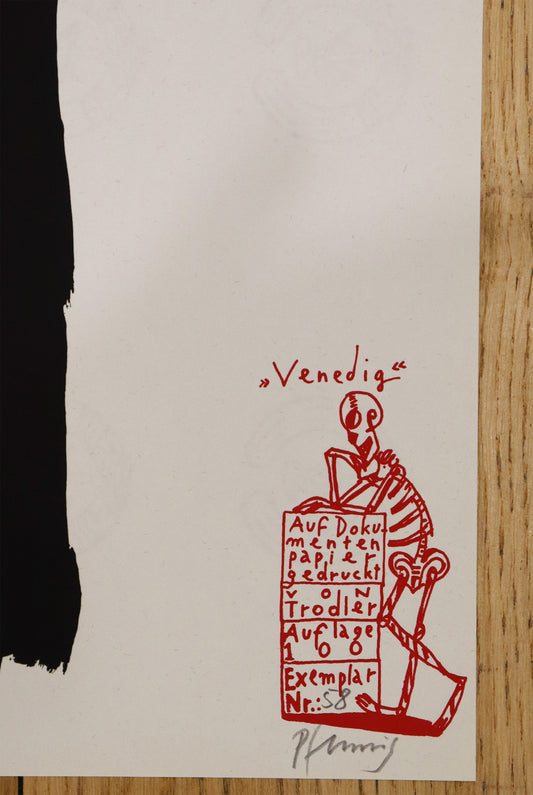 „Venedig“
Auf Doku-
menten
papier
gedruckt
VON
Trodler
Auflage
100
Exemplar
Nr.: 58
Pfennig